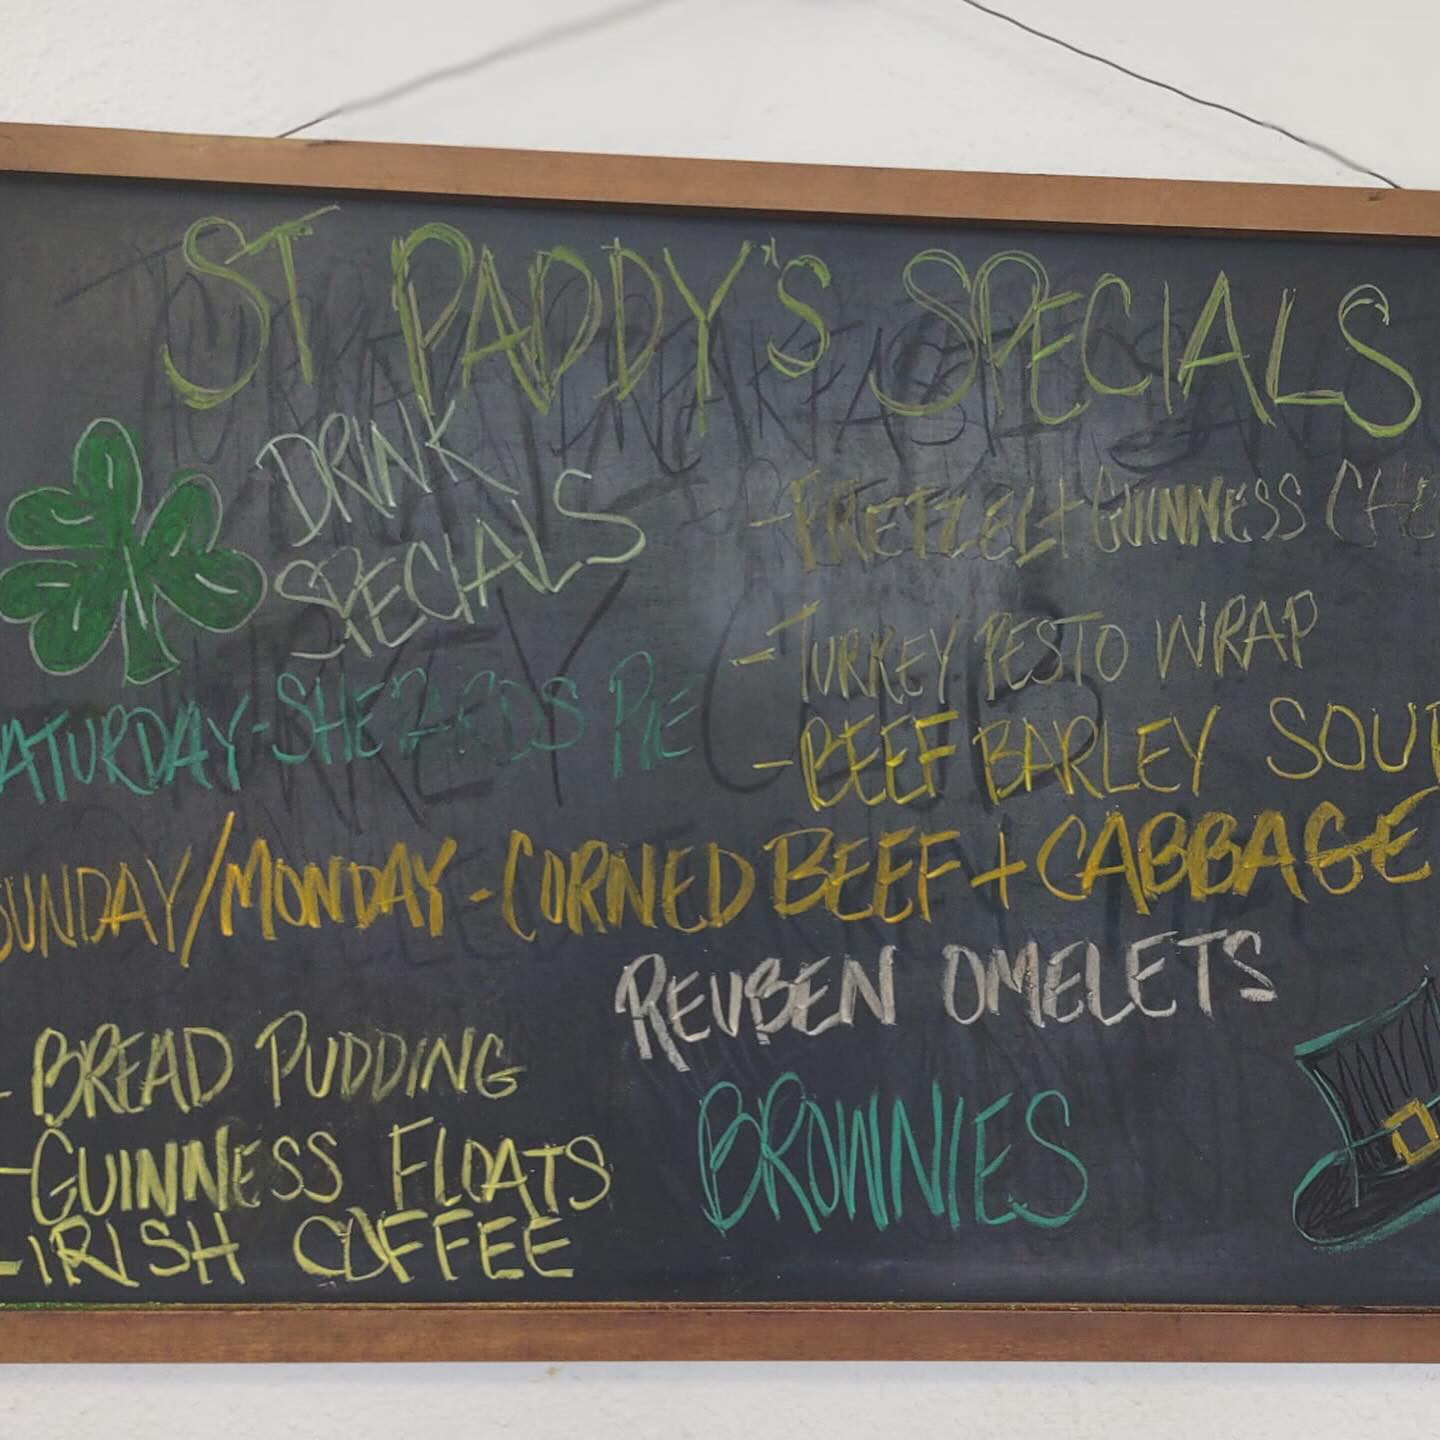 ST PADDY'S SPECIALS
DRINK
SPECIALS
- PRETZEL + GUINNESS
- TURKEY PESTO WRAP
SATURDAY - SHEPARDS PIE
- BEEF BARLEY SOUP
SUNDAY/MONDAY - CORNED BEEF + CABBAGE
REUBEN OMELETS
- BREAD PUDDING
- GUINNESS FLOATS
- IRISH COFFEE
BROWNIES